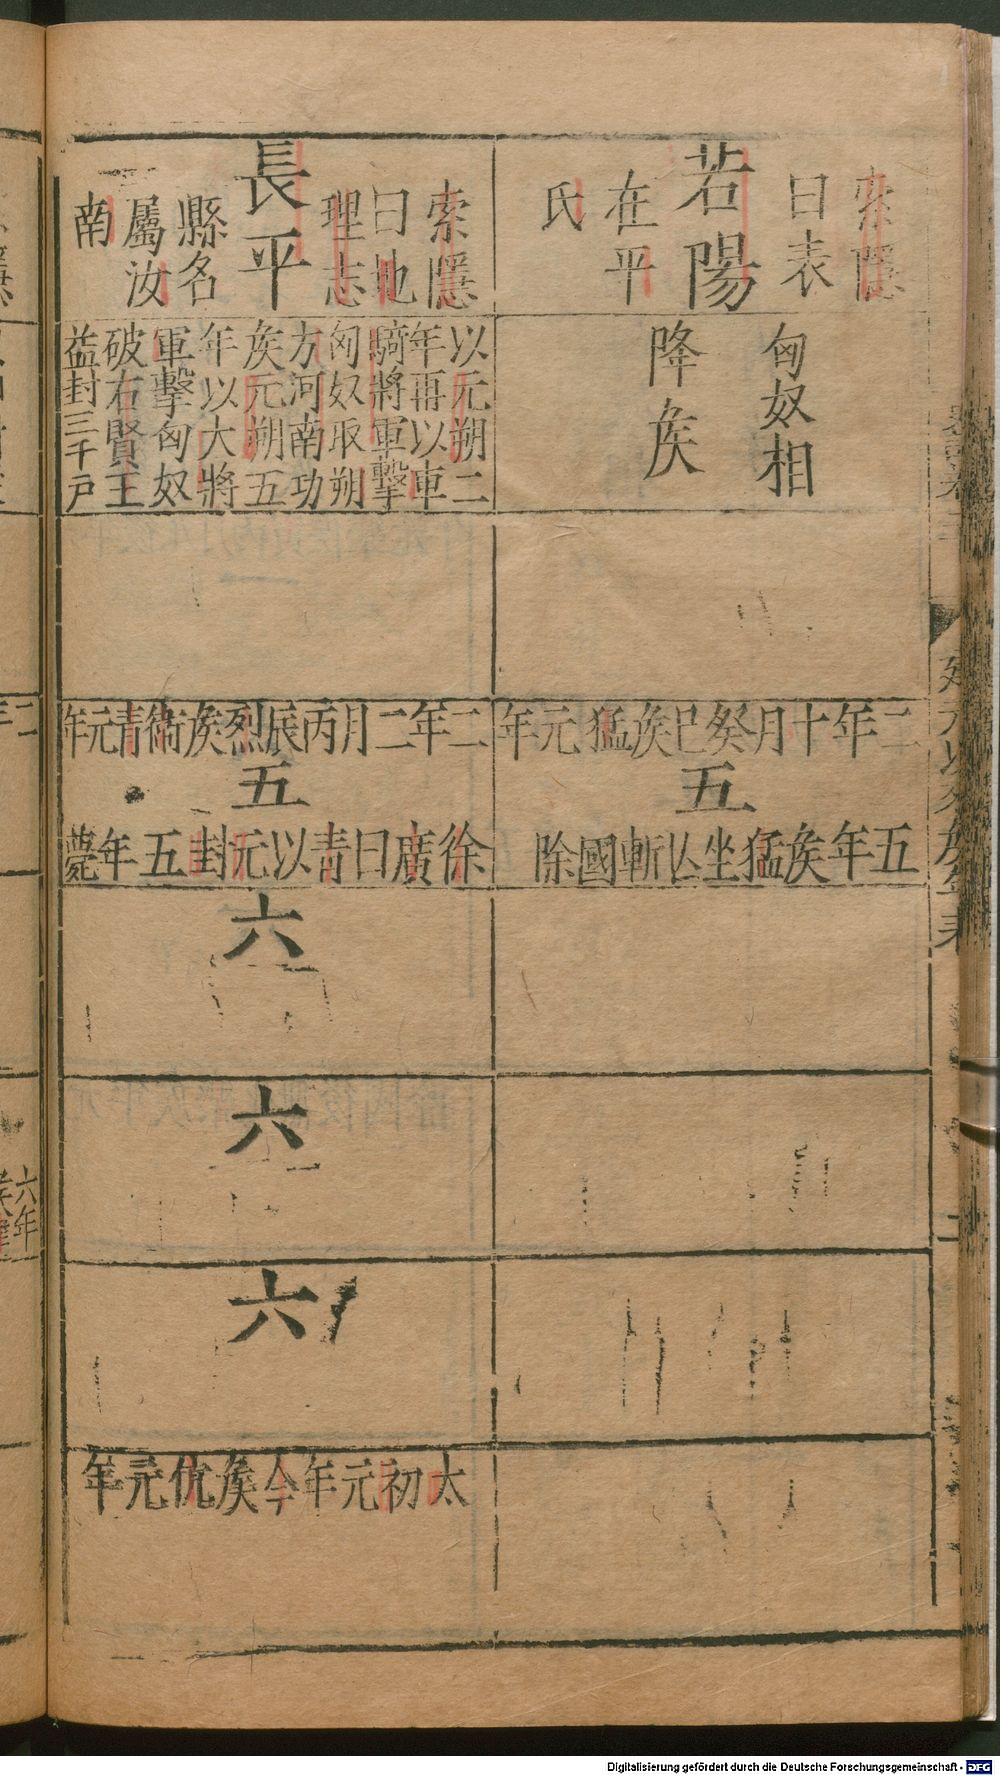 索隱
曰表
若陽
在平
氏
匈奴相
降矦
二年十月癸巳矦猛元年
五
五年矦猛坐亾斬國除
索隱
曰地
理志
長平
縣名
屬汝
南
以元朔二
年再以車
騎將軍擊
匈奴取朔
方河南功
矦元朔五
年以大將
軍擊匈奴
破右賢王
益封三千戸
二年二月丙辰烈矦衛青元年
五
徐廣曰青以元封五年薨
六
六
六
太初元年今矦伉元年
六年
Digitalisierung gefördert durch die Deutsche Forschungsgemeinschaft - DFG